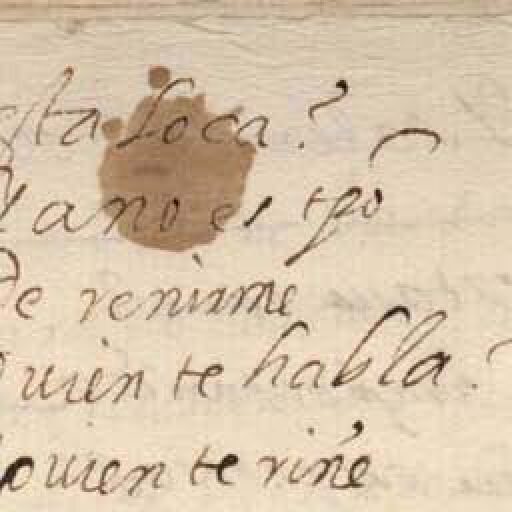 sta loca?
Ya no es tpo
De renirme
quien te habla?
quien te riñe